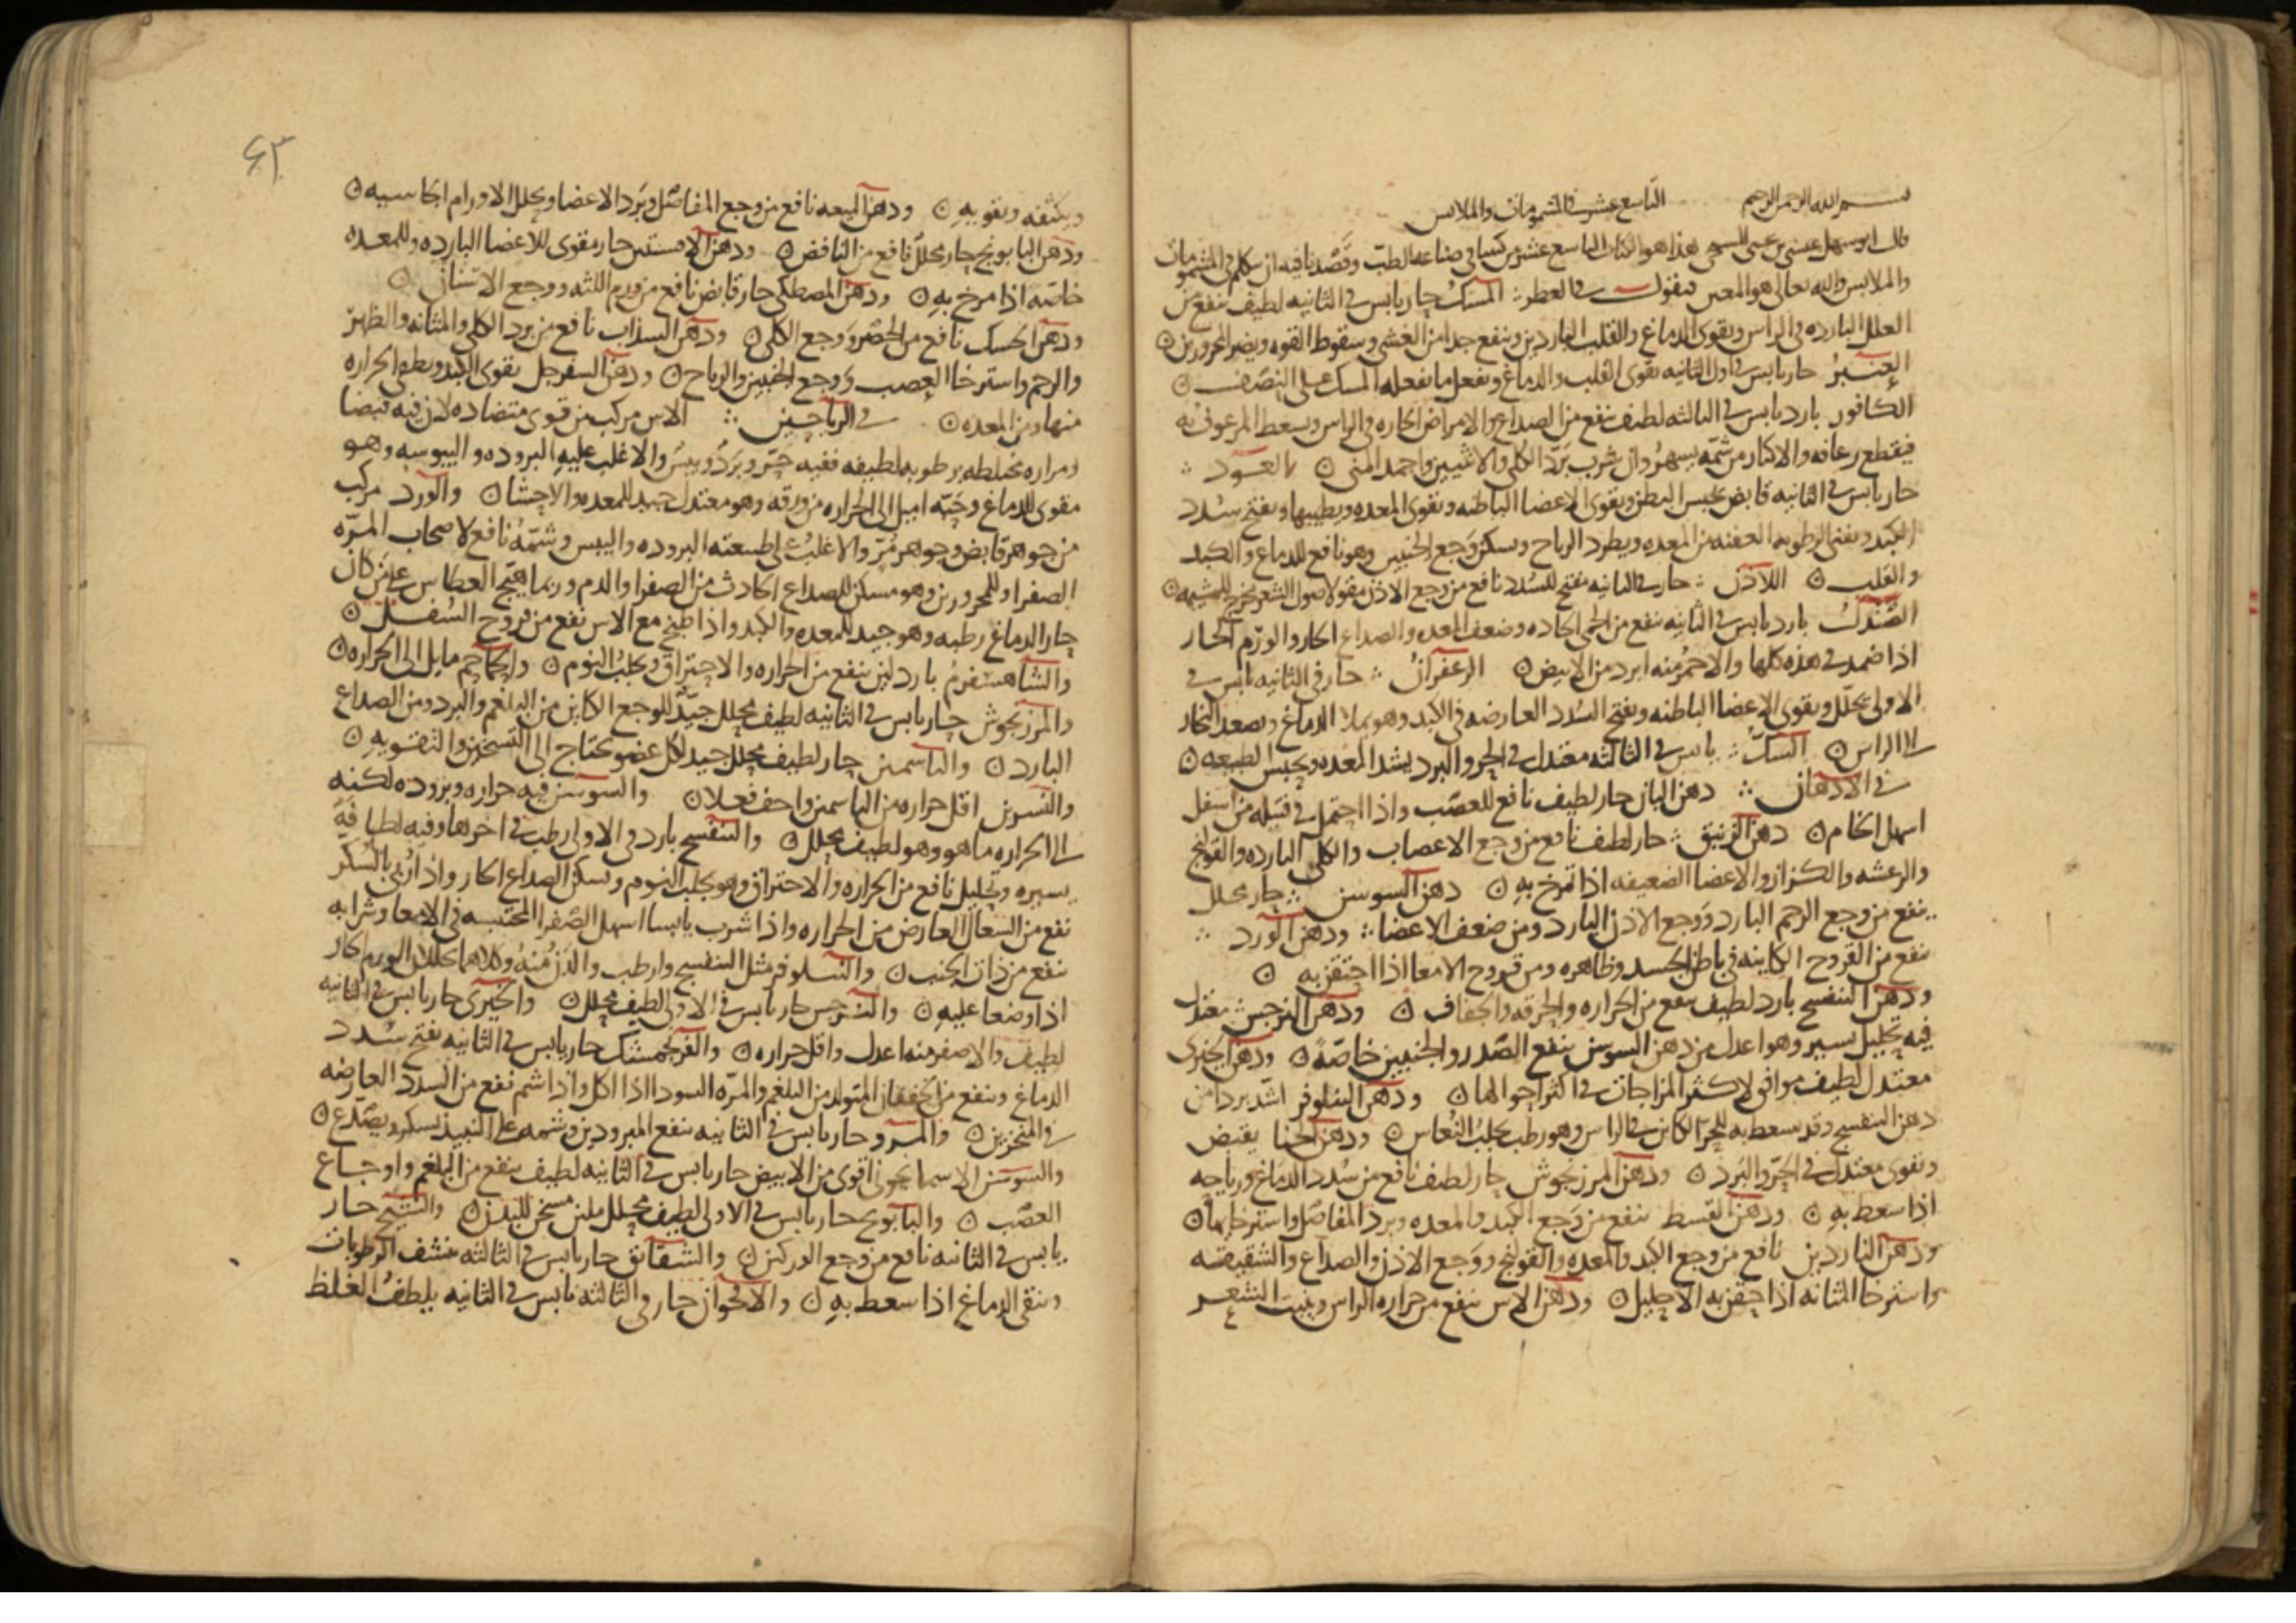 بسم الله الرحمن الرحيم التاسع عشر في المشمومات والملابس
قال ابو سهل عيسى بن يحيى المسيحي هذا هو الكتاب التاسع عشر من كتبنا في صناعه الطب وقصدنا فيه ان نتكلم في المشمومات
والملابس والله تعالى هو المعين فنقول في العطر المسك حار يابس في الثانيه لطيف ينفع من
العلل البارده في الراس ويقوى الدماغ والقلب الباردين وينفع جدا من الغشى وسقوط القوه ويضر المحرورين
العنبر حار يابس في اول الثانيه يقوى القلب والدماغ ويفعل ما يفعله المسك على النصف
الكافور بارد يابس في الثالثه لطيف ينفع من الصداع والامراض الحاره في الراس ويسعط المرعوف به
فيقطع رعافه والاكثار من شمه يسهر وان شرب برد الكلى والانثيين واجمد المنى العود
حار يابس في الثانيه قابض يحبس البطن ويقوى الاعضا الباطنه ويقوى المعده ويطيبها ويفتح سدد
الكبد ويفنى الرطوبه العفنه من المعده ويطرد الرياح ويسكن وجع الجنبين وهو نافع للدماغ والكبد
والقلب اللاذن حار في الثانيه مفتح للسدد نافع من وجع الاذن مقو لاصول الشعر مخرج للمشيمه
الصندل بارد يابس في الثانيه ينفع من الحمى الحاده وضعف المعده والصداع الحار والورم الحار
اذا ضمد في هذه كلها والاحمر منه ابرد من الابيض الزعفران حار في الثانيه يابس في
الاولى يحلل ويقوى الاعضا الباطنه ويفتح السدد العارضه في الكبد وهو يملا الدماغ ويصعد البخار
الى الراس السك يابس في الثالثه معتدل في الحر والبرد يشد المعده ويحبس الطبيعه
في الادهان دهن البان حار لطيف نافع للعصب واذا احتمل في فتيله من اسفل
اسهل الخام دهن الزنبق حار لطيف نافع من وجع الاعصاب والكلى البارده والقولنج
والرعشه والكزاز والاعضا الضعيفه اذا تمرخ به دهن السوسن حار محلل
ينفع من وجع الرحم البارد ووجع الاذن البارد ومن ضعف الاعضا ودهن الورد
ينفع من القروح الكاينه في باطن الجسد وظاهره ومن قروح الامعا اذا احتقن به
ودهن البنفسج بارد لطيف ينفع من الحراره والحرقه والجفاف ودهن النرجس معتدل
فيه تحليل يسير وهو اعدل من دهن السوسن ينفع الصدر والجنبين خاصه ودهن الخيرى
معتدل لطيف موافق لاكثر المزاجات في اكثر احوالها ودهن النيلوفر اشد بردا من
دهن البنفسج وقد يسعط به للحر الكاين في الراس وهو رطب يجلب النعاس ودهن الحنا يقبض
ويقوى معتدل في الحر والبرد ودهن المرزنجوش حار لطيف نافع من سدد الدماغ ورياحه
اذا سعط به ودهن القسط ينفع من وجع الكبد والمعده وبرد المفاصل واسترخايها
ودهن الناردين نافع من وجع الكبد والمعده والقولنج ووجع الاذن والصداع والشقيقه
واسترخا المثانه اذا حقن به الاحليل ودهن الاس ينفع من حراره الراس وينبت الشعر
٤٣
ويكثفه ويقويه ودهن الميعه نافع من وجع المفاصل وبرد الاعضا ويحلل الاورام الجاسيه
ودهن البابونج حار محلل نافع من النافض ودهن الافسنتين حار مقوى للاعضا البارده وللمعده
خاصه اذا مرخ به ودهن المصطكى حار قابض نافع من ورم اللثه ووجع الاسنان
ودهن الحسك نافع من الحصر ووجع الكلى ودهن السذاب نافع من برد الكلى والمثانه والظهر
والرحم واسترخا العصب ووجع الجنبين والرياح ودهن السفرجل يقوى الكبد ويطفى الحراره
منها ومن المعده في الرياحين الاس مركب من قوى متضاده لان فيه قبضا
ومراره مختلطه برطوبه لطيفه ففيه حر وبرد ويبس والاغلب عليه البروده واليبوسه وهو
مقوى للدماغ وحبه اميل الى الحراره من ورقه وهو معتدل جيد للمعده والاحشا والورد مركب
من جوهر قابض وجوهر مر والاغلب على طبيعته البروده واليبس وشمه نافع لاصحاب المره
الصفرا وللمحرورين وهو مسكن للصداع الحادث من الصفرا والدم وربما يهيج العطاس على من كان
حار الدماغ رطبه وهو جيد للمعده والكبد واذا طبخ مع الاس نفع من قروح السفل
والشاهسفرم بارد لين ينفع من الحراره والاحتراق ويجلب النوم والحماحم مايل الى الحراره
والمرزنجوش حار يابس في الثانيه لطيف محلل جيد للوجع الكاين من البلغم والبرد ومن الصداع
البارد والياسمين حار لطيف محلل جيد لكل عضو محتاج الى التسخين والتقويه
والنسرين اقل حراره من الياسمين واخف فعلا والسوسن فيه حراره وبروده لكنه
الى الحراره ما هو وهو لطيف محلل والبنفسج بارد في الاولى رطب في اخرها وفيه لطافه
يسيره وتحليل نافع من الحراره والاحتراق وهو يجلب النوم ويسكن الصداع الحار واذا ربى بالسكر
نفع من السعال العارض من الحراره واذا شرب يابسا اسهل الصفرا المحتبسه في الامعا وشرابه
ينفع من ذات الجنب والنيلوفر مثل البنفسج وارطب والذ منه وكلاهما يحللان الورم الحار
اذا وضعا عليه والنرجس حار يابس في الاولى لطيف محلل والخيرى حار يابس في الثانيه
لطيف والاصفر منه اعدل واقل حراره والفرنجمشك حار يابس في الثانيه يفتح سدد
الدماغ وينفع من الخفقان المتولد من البلغم والمره السودا اذا اكل واذا شم نفع من السدد العارضه
في المنخرين والمرو حار يابس في الثانيه ينفع المبرودين وشمه على النبيذ يسكر ويصدع
والسوسن الاسمانجونى اقوى من الابيض حار يابس في الثانيه لطيف ينفع من البلغم واوجاع
العصب والبابونج حار يابس في الاولى لطيف محلل ملين مسخن للبدن والشيح حار
يابس في الثانيه نافع من وجع الوركين والشقائق حار يابس في الثالثه ينشف الرطوبات
وينقى الدماغ اذا سعط به والاقحوان حار في الثالثه يابس في الثانيه يلطف الغلظ